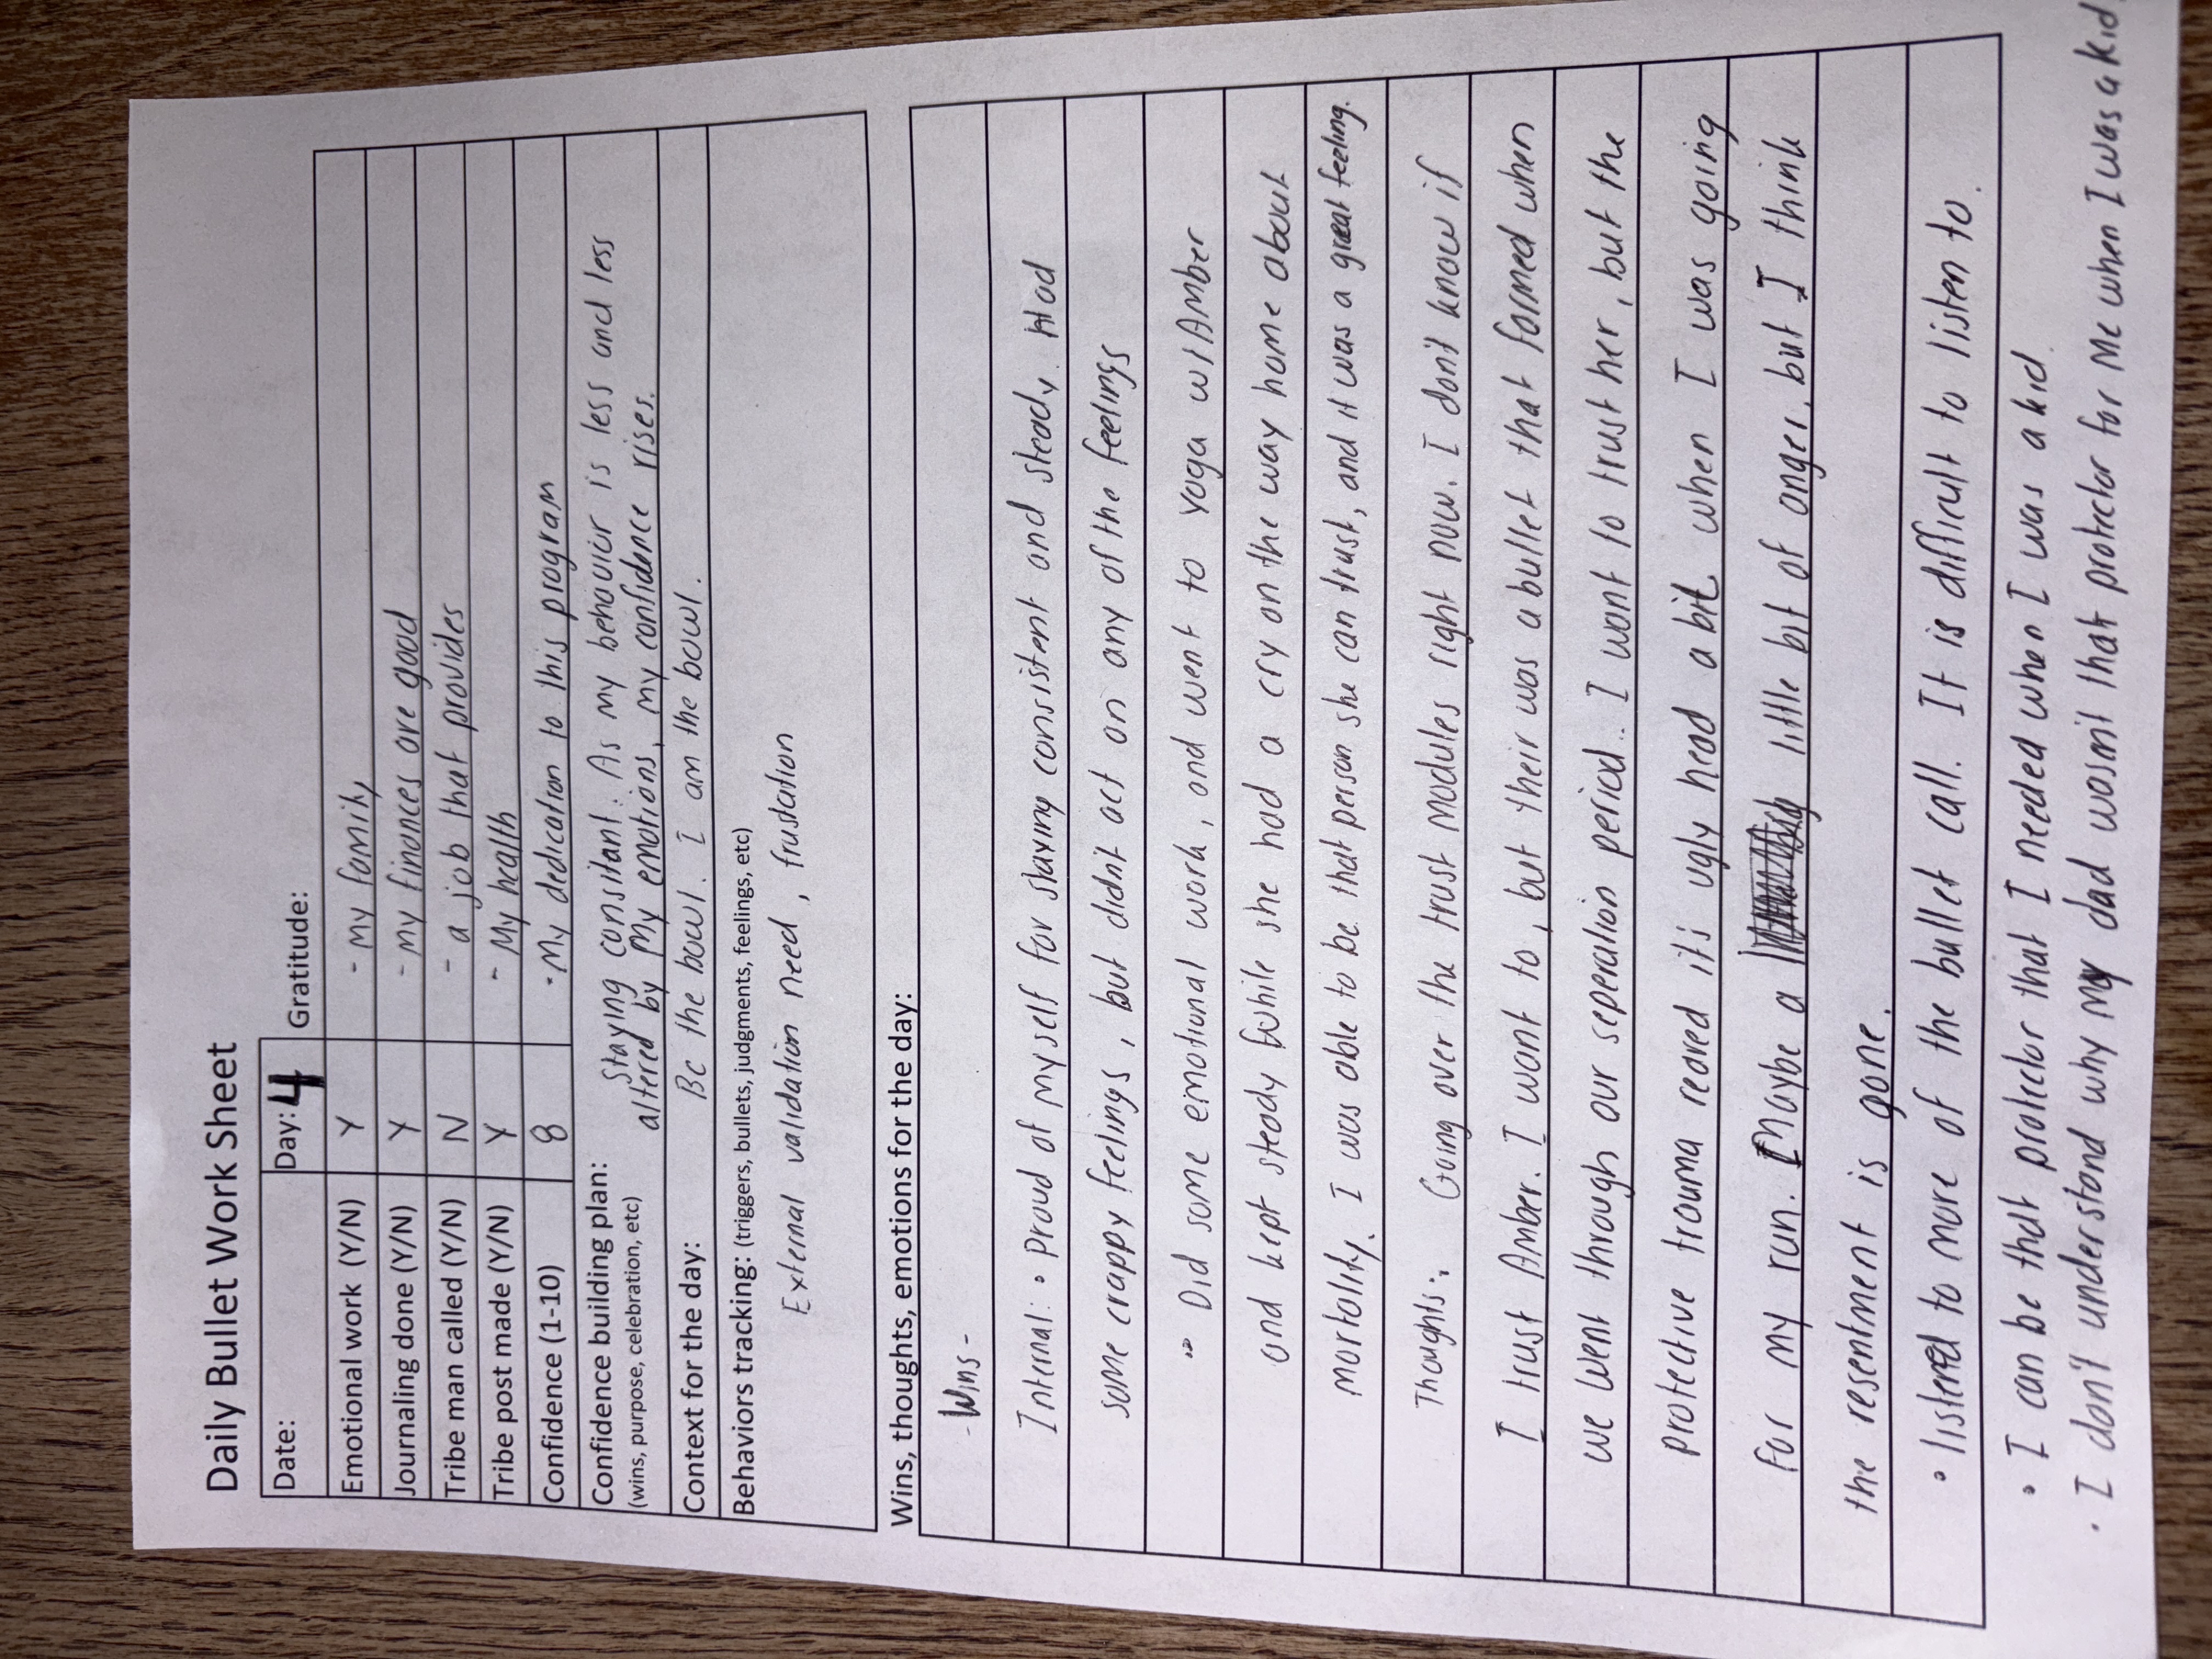 Daily Bullet Work Sheet
Date: Day: 4 Gratitude:
Emotional work (Y/N) Y - My family
Journaling done (Y/N) Y - my finances are good
Tribe man called (Y/N) N - a job that provides
Tribe post made (Y/N) Y - My health
Confidence (1-10) 8 - My dedication to this program
Confidence building plan: Staying consitant. As my behavior is less and less
(wins, purpose, celebration, etc) altered by my emotions, my confidence rises.
Context for the day: Be the bowl. I am the bowl.
Behaviors tracking: (triggers, bullets, judgments, feelings, etc)
External validation need, frustation
Wins, thoughts, emotions for the day:
- Wins -
Internal: • Proud of myself for staying consistent and steady. Had
some crappy feelings, but didn't act on any of the feelings
• Did some emotional work, and went to yoga w/ Amber
and kept steady while she had a cry on the way home about
mortality. I was able to be that person she can trust, and it was a great feeling.
Thoughts: Going over the trust modules right now. I don't know if
I trust Amber. I want to, but their was a bullet that formed when
we went through our seperation period. I want to trust her, but the
protective trauma reared it's ugly head a bit when I was going
for my run. Maybe a little bit of anger, but I think
the resentment is gone.
• listened to more of the bullet call. It is difficult to listen to.
• I can be that protector that I needed when I was a kid.
• I don't understand why my dad wasn't that protector for me when I was a kid.